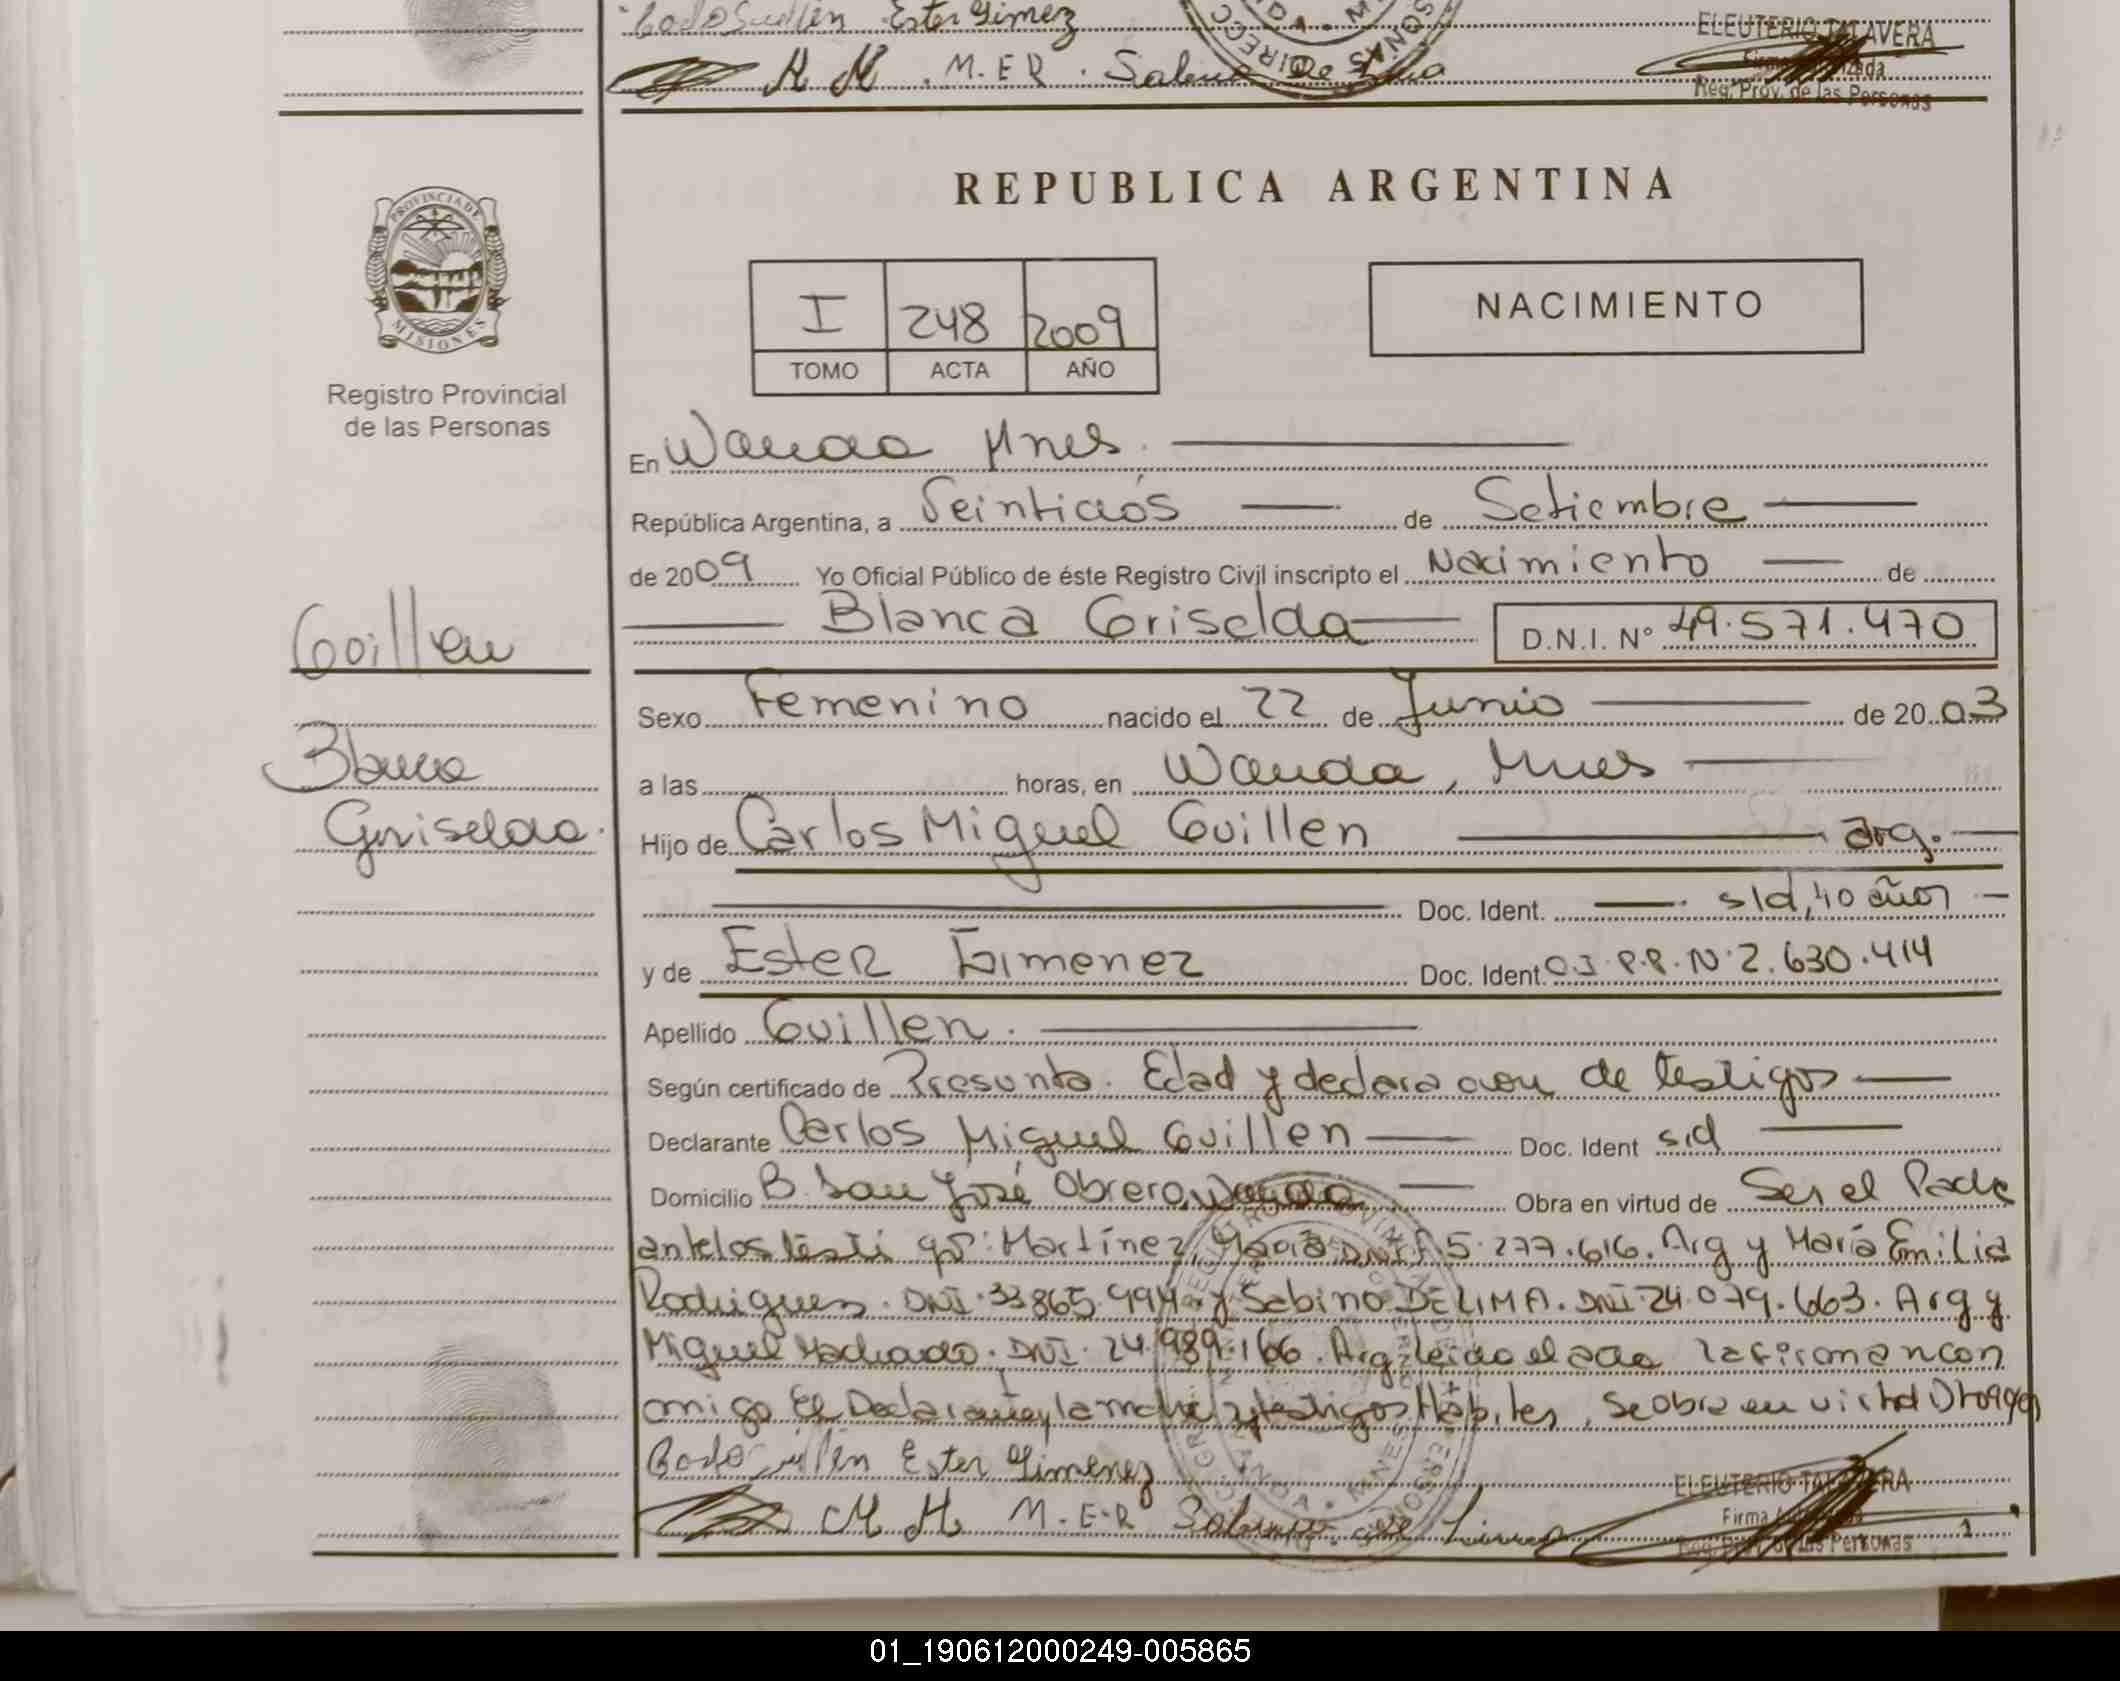 Ester Gimez
ELEUTERIO TALAVERA
M M . M.ER . Sabino De Lima
Reg. Prov. de las Personas
REPUBLICA ARGENTINA
PROVINCIA DE
MISIONES
Registro Provincial
de las Personas
I 248 2009
TOMO ACTA AÑO
NACIMIENTO
En Wanda Mnes.
República Argentina, a Veintidós de Setiembre
de 2009 Yo Oficial Público de éste Registro Civil inscripto el Nacimiento de
Blanca Griselda D.N.I. Nº 49.571.470
Guillen
Blanca
Griselda.
Sexo Femenino nacido el 22 de Junio de 20 03
a las horas, en Wanda, Mnes
Hijo de Carlos Miguel Guillen arg.
Doc. Ident. s/d, 40 años
y de Ester Gimenez Doc. Ident. C.I.P.P. N. 2.630.414
Apellido Guillen.
Según certificado de Presunta. Edad y declaracion de testigos
Declarante Carlos Miguel Guillen Doc. Ident s/d
Domicilio B. San José Obrero, Wanda Obra en virtud de Ser el Padre
ante los testi gos: Martínez, María DNI. F. 5.277.616. Arg y María Emilia
Rodriguez. DNI. 33865.994. y Sabino DE LIMA. DNI. 24.079.663. Arg y
Miguel Machado. DNI. 24.989.166. Arg leido el acta la firman con
migo El Declarante y la madre y testigos Hábiles, Se obra en virtud
Ester Gimenez
ELEUTERIO TALAVERA
M M M.E.R Sabino de Lima
Firma
Reg. Prov. de las Personas
01_190612000249-005865